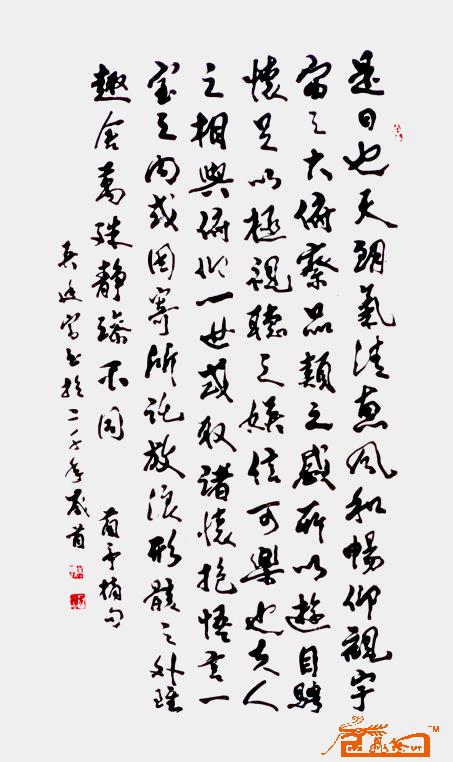 是日也天朗氣清惠風和暢仰觀宇
宙之大俯察品類之盛所以遊目騁
懷足以極視聽之娛信可樂也夫人
之相與俯仰一世或取諸懷抱悟言一
室之內或因寄所託放浪形骸之外雖
趣舍萬殊靜躁不同 蘭亭摘句
書於二年歲首